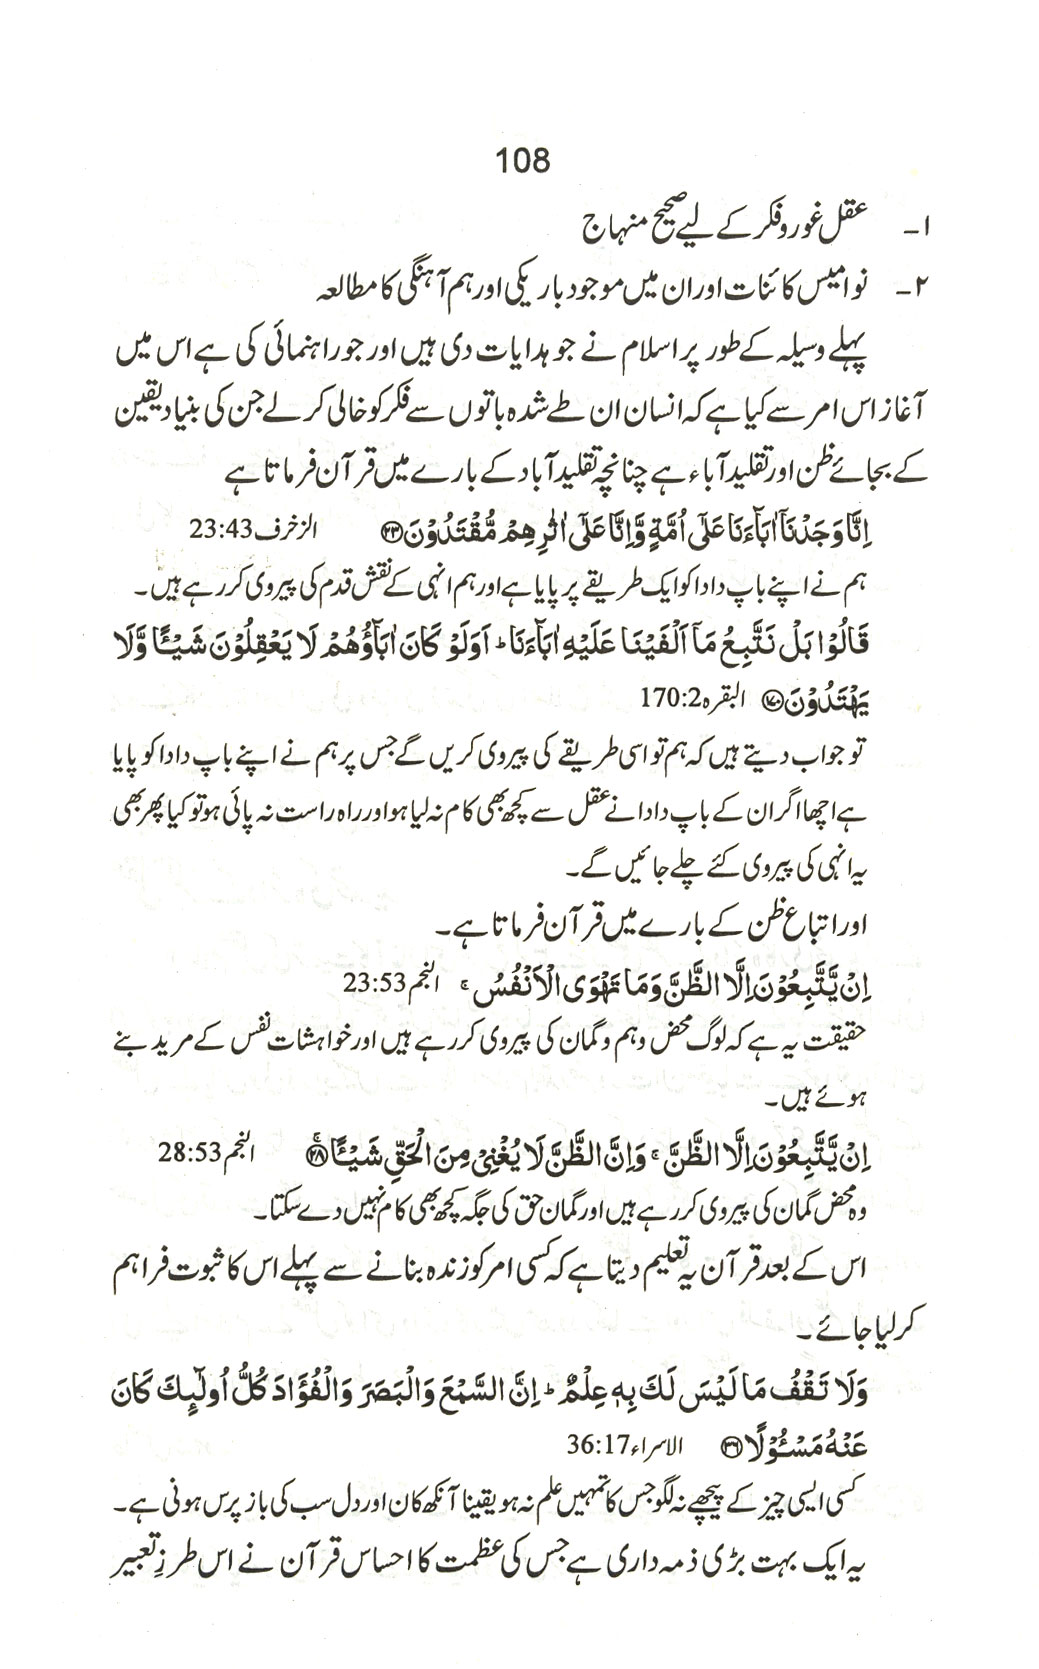 108
۱۔ عقل غور و فکر کے لیے صحیح منہاج
۲۔ نوامیس کائنات اور ان میں موجود باریکی اور ہم آہنگی کا مطالعہ
پہلے وسیلہ کے طور پر اسلام نے جو ہدایات دی ہیں اور جو راہنمائی کی ہے اس میں
آغاز اس امر سے کیا ہے کہ انسان ان طے شدہ باتوں سے فکر کو خالی کر لے جن کی بنیاد یقین
کے بجائے ظن اور تقلید آباء ہے چنانچہ تقلید آباد کے بارے میں قرآن فرماتا ہے
اِنَّا وَجَدْنَآ اٰبَآءَنَا عَلٰٓى اُمَّةٍ وَّاِنَّا عَلٰٓى اٰثٰرِهِمْ مُّقْتَدُوْنَ ﴿۲۳﴾ الزخرف 23:43
ہم نے اپنے باپ دادا کو ایک طریقے پر پایا ہے اور ہم انہی کے نقش قدم کی پیروی کر رہے ہیں۔
قَالُوْا بَلْ نَتَّبِعُ مَآ اَلْفَيْنَا عَلَيْهِ اٰبَآءَنَا ؕ اَوَلَوْ كَانَ اٰبَآؤُهُمْ لَا يَعْقِلُوْنَ شَيْـًٔا وَّلَا
يَهْتَدُوْنَ ﴿۱۷۰﴾ البقرہ 170:2
تو جواب دیتے ہیں کہ ہم تو اسی طریقے کی پیروی کریں گے جس پر ہم نے اپنے باپ دادا کو پایا
ہے اچھا اگر ان کے باپ دادا نے عقل سے کچھ بھی کام نہ لیا ہو اور راہ راست نہ پائی ہو تو کیا پھر بھی
یہ انہی کی پیروی کئے چلے جائیں گے۔
اور اتباع ظن کے بارے میں قرآن فرماتا ہے۔
اِنْ يَّتَّبِعُوْنَ اِلَّا الظَّنَّ وَمَا تَهْوَى الْاَنْفُسُ ۚ النجم 23:53
حقیقت یہ ہے کہ لوگ محض وہم و گمان کی پیروی کر رہے ہیں اور خواہشات نفس کے مرید بنے
ہوئے ہیں۔
اِنْ يَّتَّبِعُوْنَ اِلَّا الظَّنَّ ۚ وَاِنَّ الظَّنَّ لَا يُغْنِيْ مِنَ الْحَقِّ شَيْـًٔا ﴿۲۸﴾ۚ النجم 28:53
وہ محض گمان کی پیروی کر رہے ہیں اور گمان حق کی جگہ کچھ بھی کام نہیں دے سکتا۔
اس کے بعد قرآن یہ تعلیم دیتا ہے کہ کسی امر کو زندہ بنانے سے پہلے اس کا ثبوت فراہم
کر لیا جائے۔
وَلَا تَقْفُ مَا لَيْسَ لَكَ بِهٖ عِلْمٌ ؕ اِنَّ السَّمْعَ وَالْبَصَرَ وَالْفُؤَادَ كُلُّ اُولٰٓئِكَ كَانَ
عَنْهُ مَسْـُٔوْلًا ﴿۳۶﴾ الاسراء 36:17
کسی ایسی چیز کے پیچھے نہ لگو جس کا تمہیں علم نہ ہو یقینا آنکھ کان اور دل سب کی باز پرس ہونی ہے۔
یہ ایک بہت بڑی ذمہ داری ہے جس کی عظمت کا احساس قرآن نے اس طرزِ تعبیر